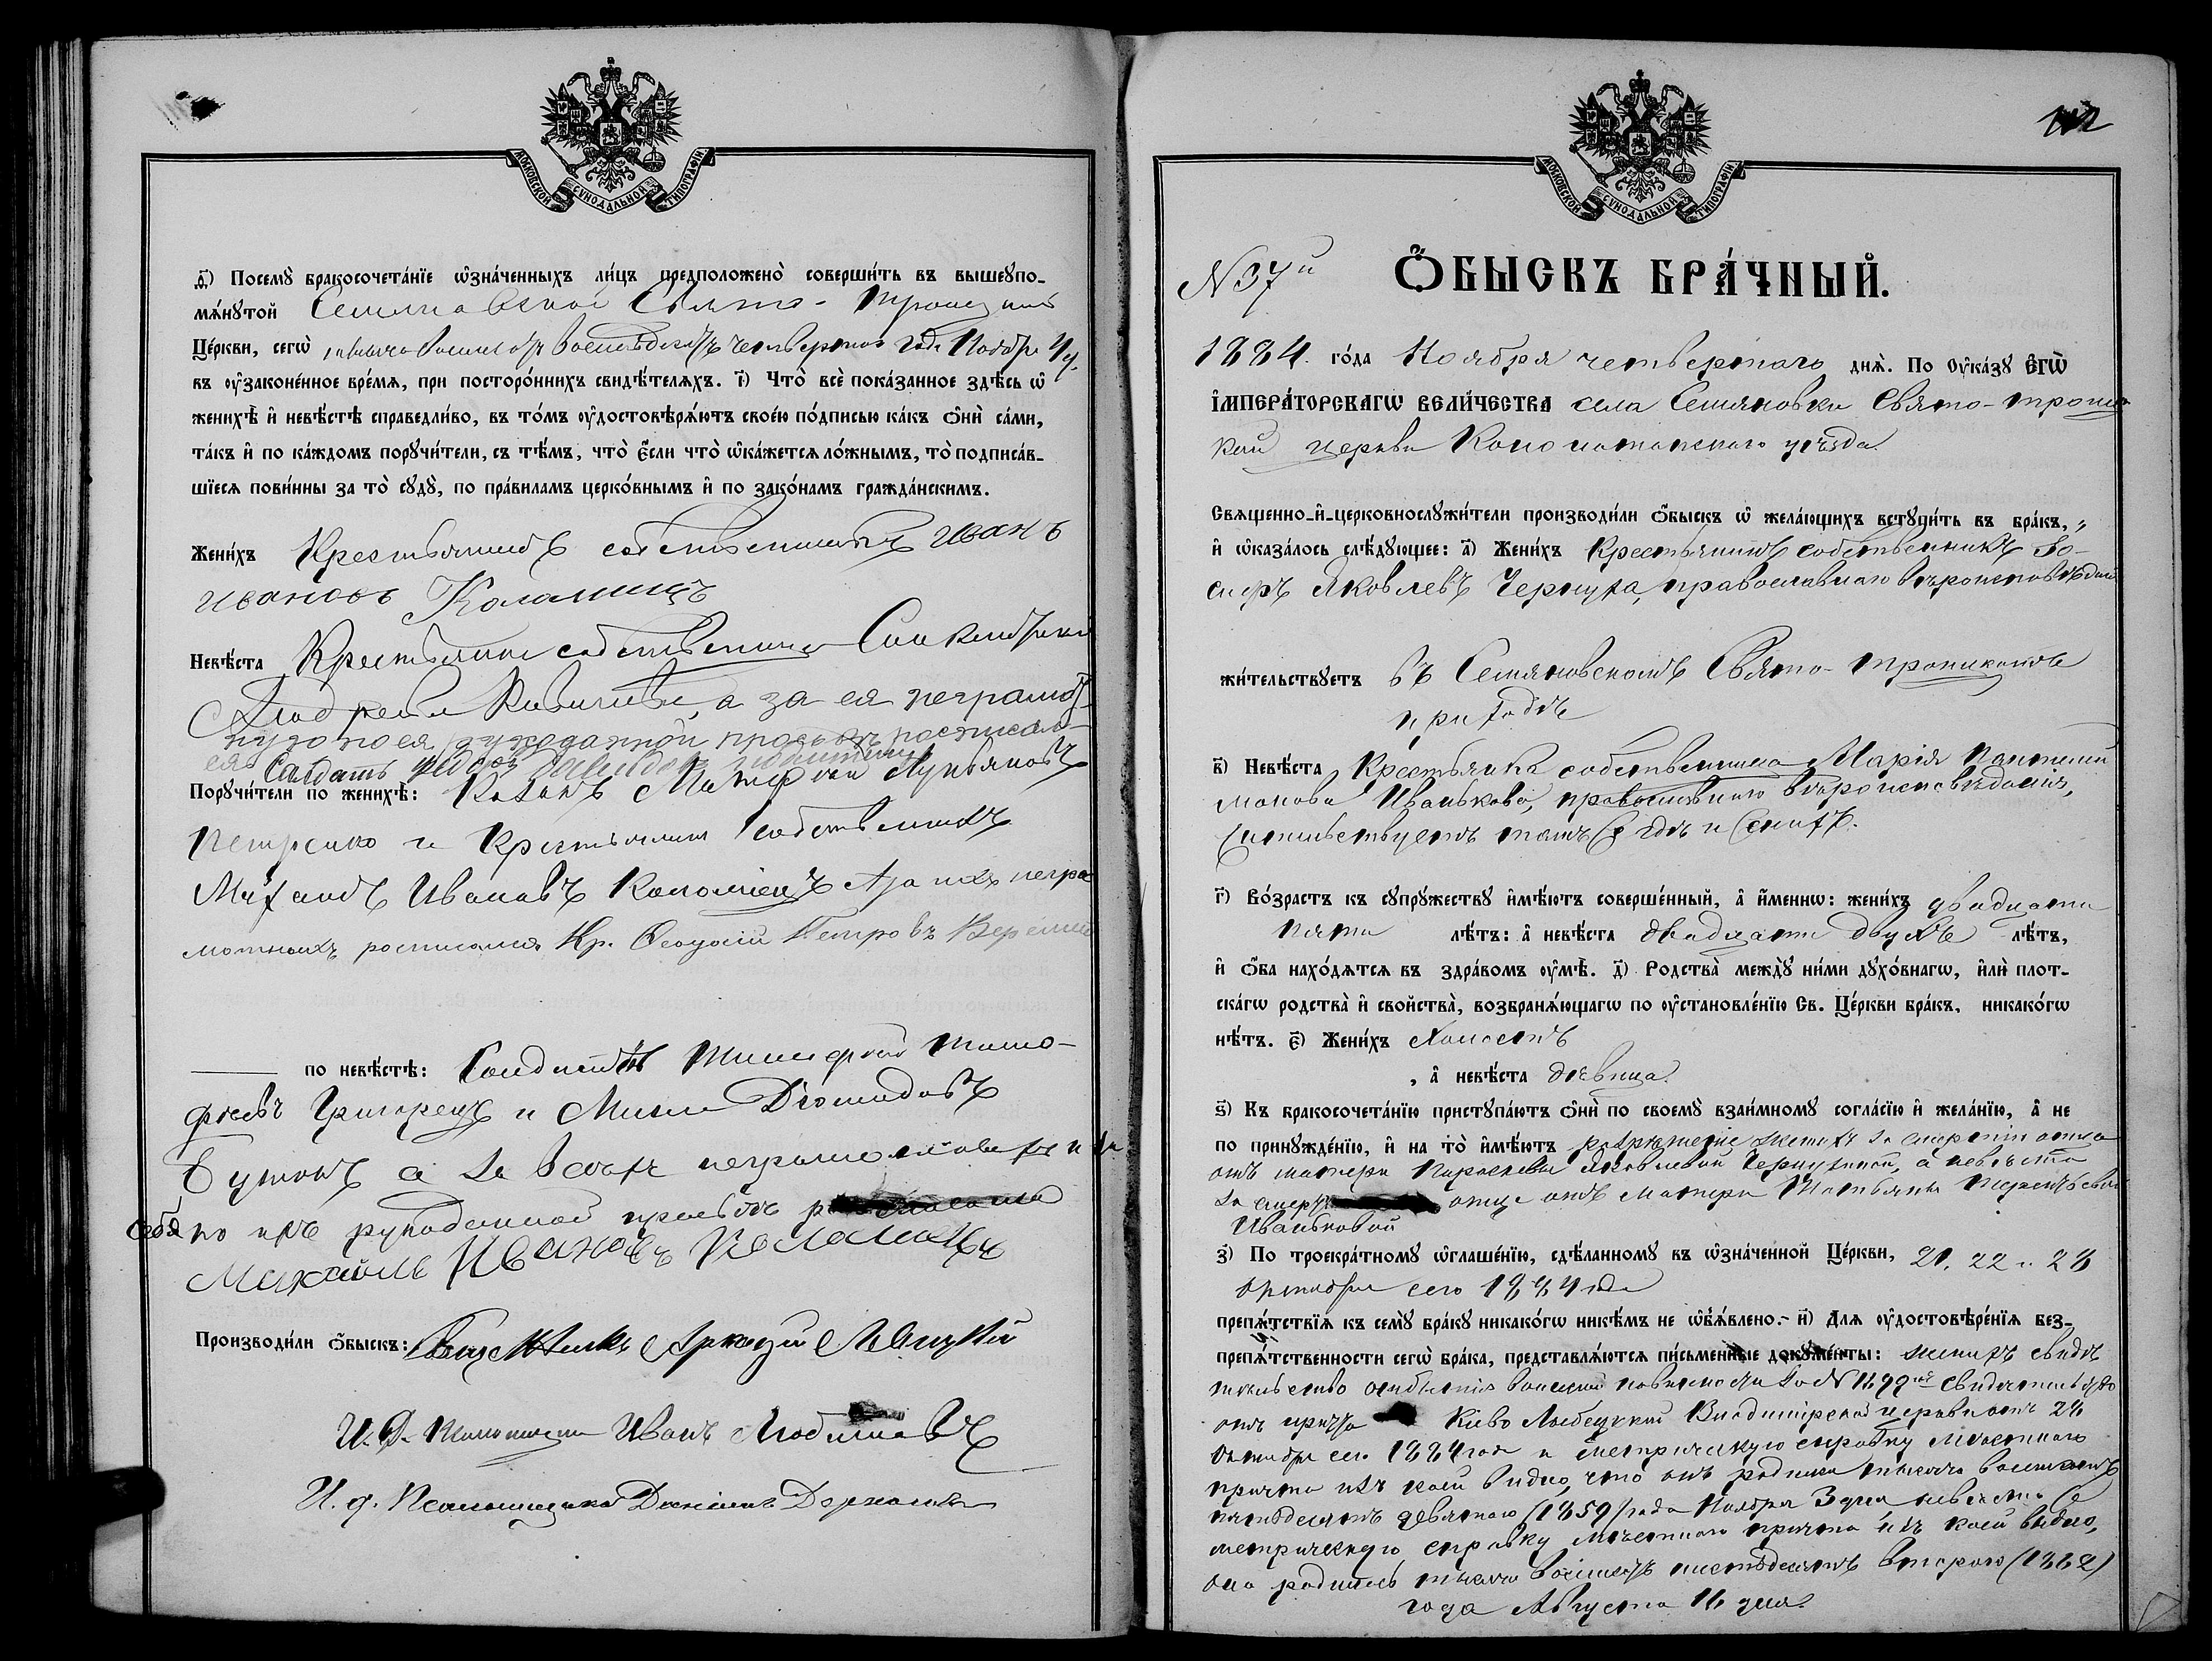 МОСКОВСКОЙ СѴНОДАЛЬНОЙ ТИПОГРАФІИ
д҃) Посемꙋ̀ бракосочета́нїе ѡ҆зна́ченныхъ ли́цъ предположено̀ соверши́ть въ вышеꙋпо-
мѧ́нꙋтой Семяновской Свято-Троицкой
Це́ркви, сегѡ̀ тысяча восемьсотъ восемьдесятъ четвертаго года Ноября 4 ч.
въ ᲂу҆законе́нное вре́мѧ, при посторо́ннихъ свидѣ́телѧхъ. і҃) Что̀ всѐ пока́занное здѣ́сь ѡ҆
женихѣ̀ и҆ невѣ́стѣ справедли́во, въ то́мъ ᲂу҆достовѣрѧ́ютъ своє́ю по́дписью ка́къ ѻ҆нѝ са́ми,
та́къ и҆ по ка́ждомъ порꙋчи́тели, съ тѣ́мъ, что̀ є҆́сли что̀ ѡ҆ка́жетсѧ ло́жнымъ, то̀ подписа́в-
шїесѧ пови́нны за то̀ сꙋдꙋ̀, по пра́виламъ церко́внымъ и҆ по зако́намъ гражда́нскимъ.
Жени́хъ Крестьянинъ собственникъ Иванъ
Ивановъ Коломиецъ
Невѣ́ста Крестьянка собственница
а за ея неграмот-
ную по ея рукоданной просьбѣ росписал-
ся Солдатъ
Порꙋчи́тели по женихѣ̀: Козакъ Лукьяновъ
Петренко и Крестьянинъ собственникъ
Михаилъ Ивановъ Коломіецъ А за ихъ негра
мотныхъ росписался Кр. Феодосій Петровъ
по невѣ́стѣ: Солдатъ Тимофей Тимо-
фѣевъ Григорецъ и Демидовъ
Бутокъ а за всѣхъ неграмотныхъ и за
себя по ихъ рукоданной просьбѣ
Михаилъ Ивановъ Коломиецъ
Производи́ли ѻ҆́быскъ: Священникъ Аркадій
И. д. Псаломщика Иванъ
И. д. Псаломщика Даніилъ
МОСКОВСКОЙ СѴНОДАЛЬНОЙ ТИПОГРАФІИ
112
N 37й
Ѻ҆́БЫСКЪ БРА́ЧНЫЙ.
1884. го́да Ноября четвертаго днѧ̀. По ᲂу҆ка́зꙋ Є҆ГѠ̀
І҆МПЕРА́ТОРСКАГѠ ВЕЛИ́ЧЕСТВА села Семяновки Свято-Троиц-
кой церкви Конотопскаго уѣзда
Свѧщенно-и҆-церковнослꙋжи́тели производи́ли ѻ҆́быскъ ѡ҆ жела́ющихъ встꙋпи́ть въ бра́къ,
и҆ ѡ҆каза́лось слѣ́дꙋющее: а҃) Жени́хъ Крестьянинъ собственникъ Іо-
сифъ Яковлевъ Чернуха, православнаго вѣроисповѣданія
жи́тельствꙋетъ въ Семяновскомъ Свято-Троицкомъ
приходѣ
в҃) Невѣ́ста Крестьянка собственница Марія Пантелей
монова Иванькова, православнаго вѣроисповѣданія,
жительствуетъ тамъ же гдѣ и женихъ.
г҃) Во́зрастъ къ сꙋпрꙋ́жествꙋ и҆мѣ́ютъ соверше́нный, а҆ и҆́меннѡ: жени́хъ двадцати
пяти лѣ́тъ: а҆ невѣ́ста двадцати двухъ лѣ́тъ,
и҆ ѻ҆́ба нахо́дѧтсѧ въ здра́вомъ ᲂу҆мѣ̀. д҃) Родства̀ междꙋ̀ ни́ми дꙋхо́внагѡ, и҆лѝ плот-
ска́гѡ родства̀ и҆ свойства̀, возбранѧ́ющагѡ по ᲂу҆становле́нїю Св. Це́ркви бра́къ, никако́гѡ
нѣ́тъ. є҃) Жени́хъ холостъ
, а҆ невѣ́ста дѣвица.
ѕ҃) Къ бракосочета́нїю пристꙋпа́ютъ ѻ҆нѝ по своемꙋ̀ взаи́мномꙋ согла́сїю и҆ жела́нїю, а҆ не
по принꙋжде́нїю, и҆ на то̀ и҆мѣ́ютъ разрѣшеніе женихъ за смертію отца
отъ матери Параскевы Яковлевой Чернухиной, а невѣста
за смертію отца отъ матери Татьяны Терентьевой
Иваньковой
з҃) По троекра́тномꙋ ѡ҆глаше́нїю, сдѣ́ланномꙋ въ ѡ҆зна́ченной Це́ркви, 21, 22 и 28
Октября сего 1884 года
препѧ́тствїѧ къ семꙋ̀ бра́кꙋ никако́гѡ никѣ́мъ не ѡ҆б̾ѧ́влено.- и҃) Длѧ ᲂу҆достовѣре́нїѧ без-
препѧ́тственности сегѡ̀ бра́ка, представлѧ́ютсѧ пи́сьменные докꙋме́нты: женихъ свидѣ
тельство отбытія воинской повинности за N свидетельство
отъ причта Кіево Лыбедской Владимірской церкви отъ 28
Октября сего 1884 года и метрическую справку мѣстнаго
причта изъ коей видно, что онъ родился тысяча восемьсотъ
пятьдесятъ девятаго (1859) года Ноября 3 дня, невѣста же
метрическую справку мѣстнаго причта изъ коей видно,
она родилась тысяча восемьсотъ шестьдесятъ втораго (1862)
года Августа 16 дня